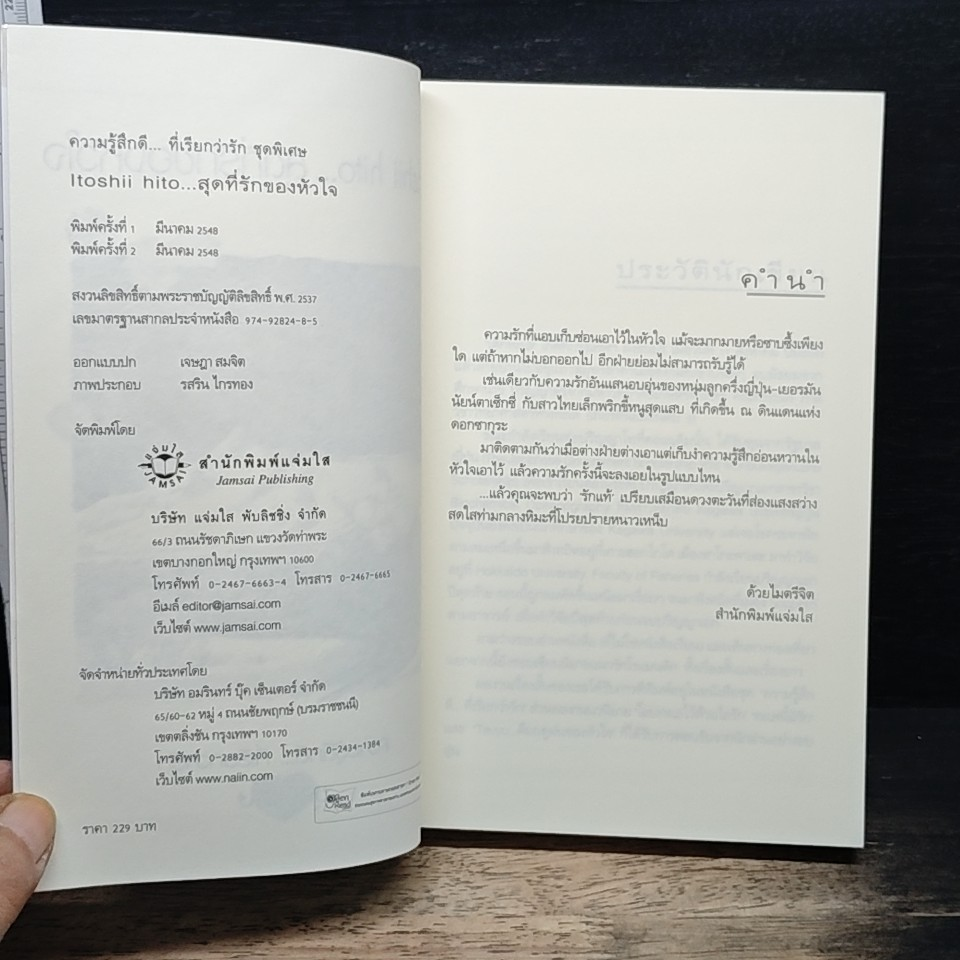 ความรู้สึกดี... ที่เรียกว่ารัก ชุดพิเศษ
Itoshii hito...สุดที่รักของหัวใจ
พิมพ์ครั้งที่ 1 มีนาคม 2548
พิมพ์ครั้งที่ 2 มีนาคม 2548
สงวนลิขสิทธิ์ตามพระราชบัญญัติลิขสิทธิ์ พ.ศ. 2537
เลขมาตรฐานสากลประจำหนังสือ 974-92824-8-5
ออกแบบปก เจษฎา สมจิต
ภาพประกอบ รสริน ไกรทอง
จัดพิมพ์โดย
แจ่มใส
JAMSAI
สำนักพิมพ์แจ่มใส
Jamsai Publishing
บริษัท แจ่มใส พับลิชชิ่ง จำกัด
66/3 ถนนรัชดาภิเษก แขวงวัดท่าพระ
เขตบางกอกใหญ่ กรุงเทพฯ 10600
โทรศัพท์ 0-2467-6663-4 โทรสาร 0-2467-6665
อีเมล์ editor@jamsai.com
เว็บไซต์ www.jamsai.com
จัดจำหน่ายทั่วประเทศโดย
บริษัท อมรินทร์ บุ๊ค เซ็นเตอร์ จำกัด
65/60-62 หมู่ 4 ถนนชัยพฤกษ์ (บรมราชชนนี)
เขตตลิ่งชัน กรุงเทพฯ 10170
โทรศัพท์ 0-2882-2000 โทรสาร 0-2434-1384
เว็บไซต์ www.naiin.com
ราคา 229 บาท
คำนำ
ความรักที่แอบเก็บซ่อนเอาไว้ในหัวใจ แม้จะมากมายหรือซาบซึ้งเพียง
ใด แต่ถ้าหากไม่บอกออกไป อีกฝ่ายย่อมไม่สามารถรับรู้ได้
เช่นเดียวกับความรักอันแสนอบอุ่นของหนุ่มลูกครึ่งญี่ปุ่น-เยอรมัน
นัยน์ตาเซ็กซี่ กับสาวไทยเล็กพริกขี้หนูสุดแสบ ที่เกิดขึ้น ณ ดินแดนแห่ง
ดอกซากุระ
มาติดตามกันว่าเมื่อต่างฝ่ายต่างเอาแต่เก็บงำความรู้สึกอ่อนหวานใน
หัวใจเอาไว้ แล้วความรักครั้งนี้จะลงเอยในรูปแบบไหน
...แล้วคุณจะพบว่า 'รักแท้' เปรียบเสมือนดวงตะวันที่ส่องแสงสว่าง
สดใสท่ามกลางหิมะที่โปรยปรายหนาวเหน็บ
ด้วยไมตรีจิต
สำนักพิมพ์แจ่มใส